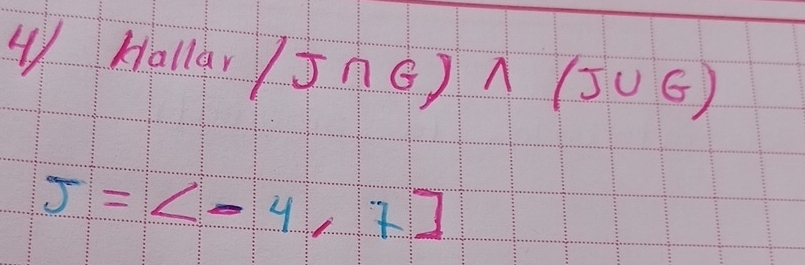 4) Hallar (J∩G) ∧ (J∪G)
J = <-4, 7]